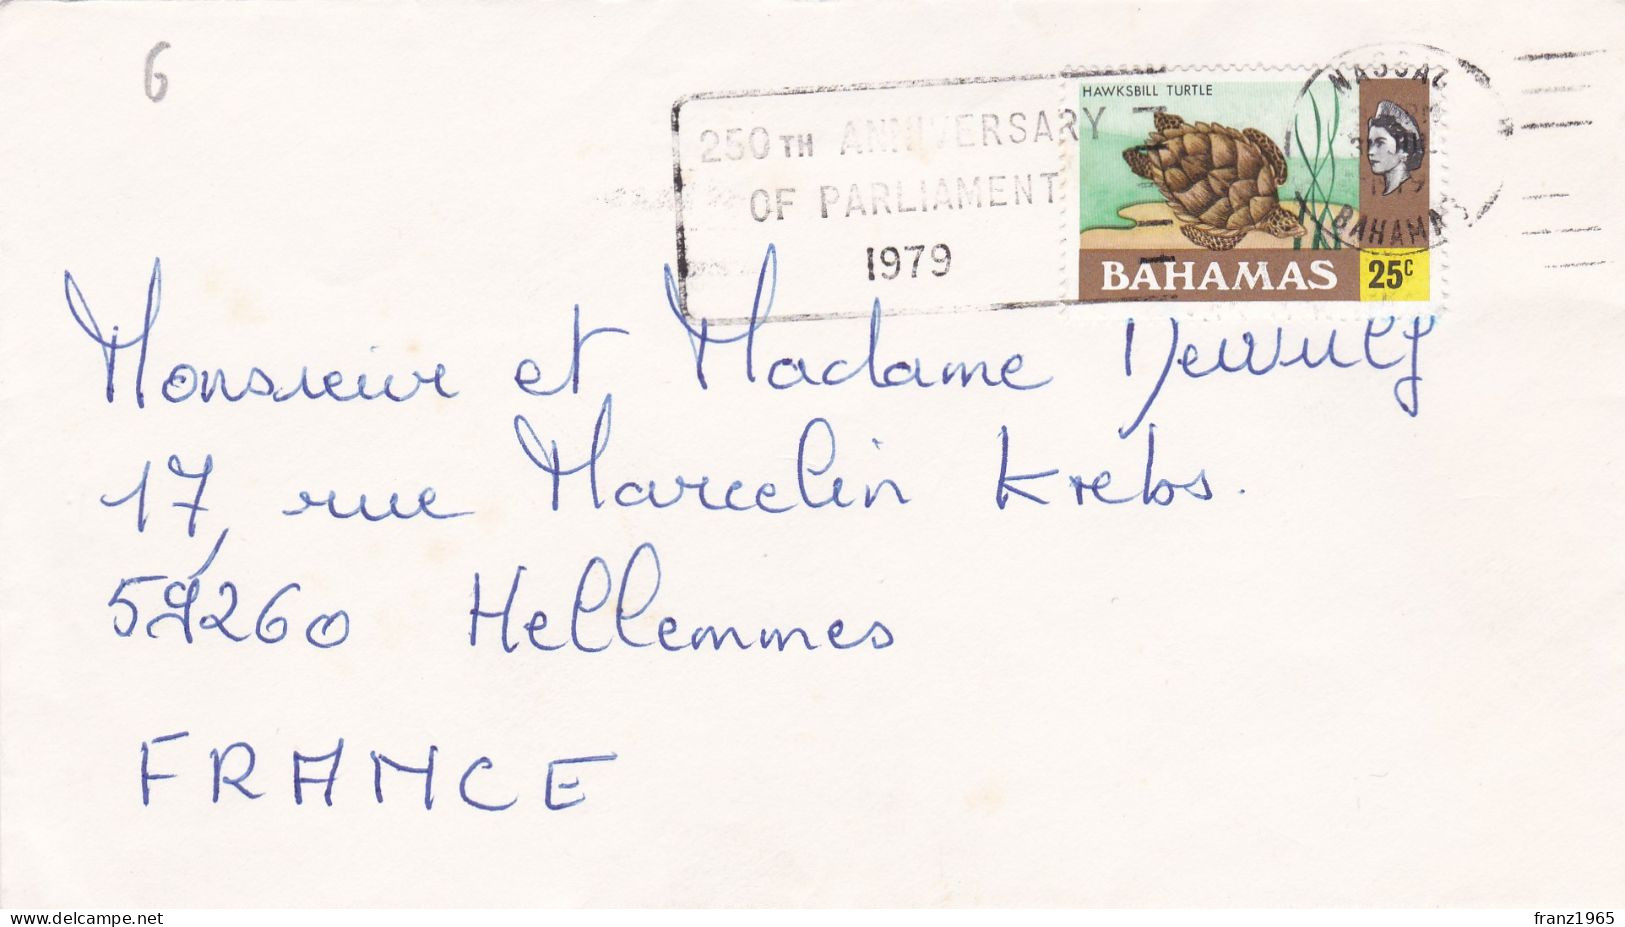 6
250TH ANNIVERSARY
OF PARLIAMENT
1979
HAWKSBILL TURTLE
BAHAMAS
25c
NASSAU
1979
BAHAMAS
Monsieur et Madame Dewulf
17, rue Marcelin Krebs.
59260 Hellemmes
FRANCE
delcampe.net
franz1965